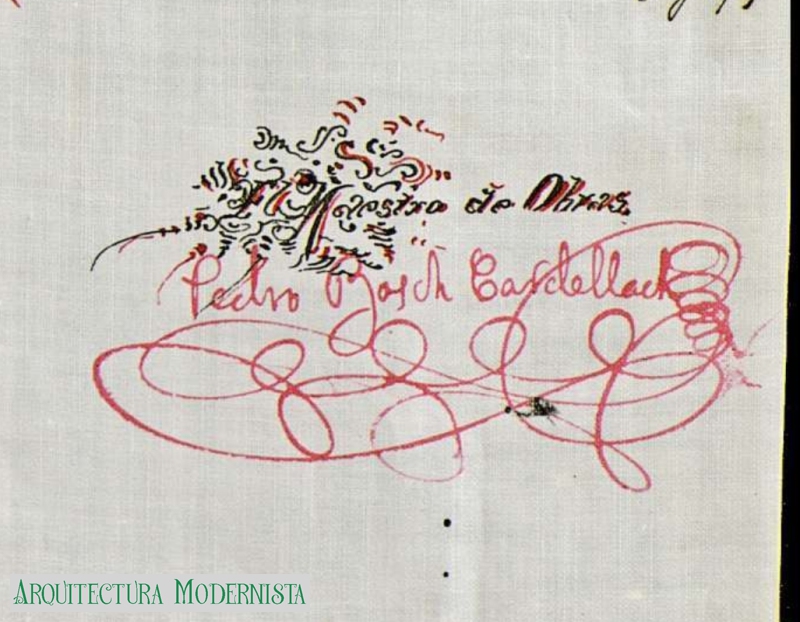 El Maestro de Obras.
Pedro Bosch Castellach
Arquitectura Modernista